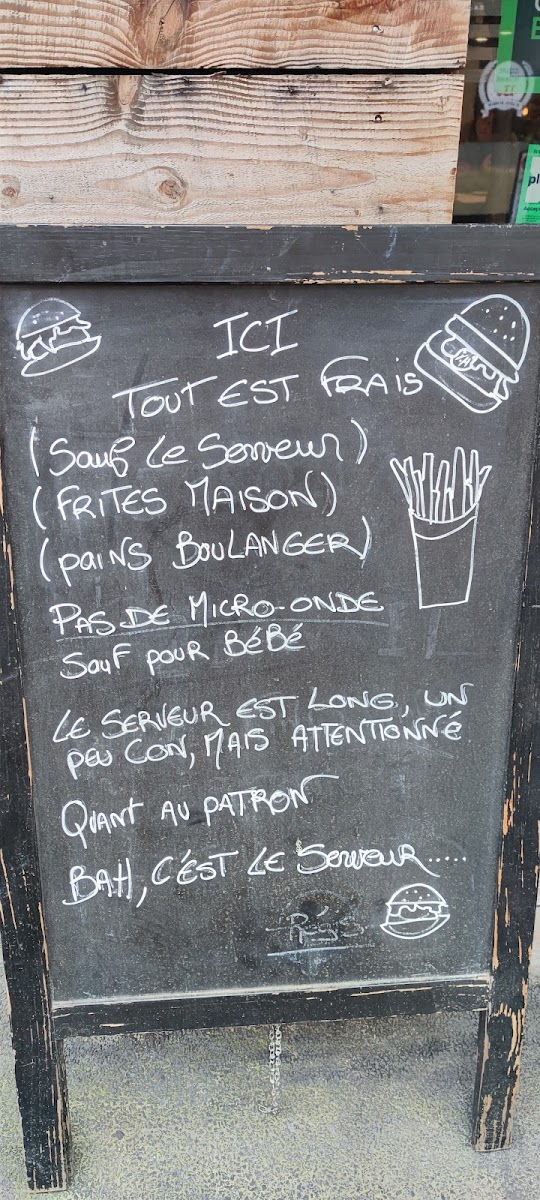 ICI
TOUT EST FRAIS
(Sauf Le Serveur)
(FRITES MAISON)
(pains BOULANGER)
PAS DE MICRO-ONDE
Sauf pour BéBé
LE SERVEUR EST LONG, UN
peu CON, MAIS ATTENTIONNÉ
QUANT AU PATRON
BAH, C'EST LE Serveur.....